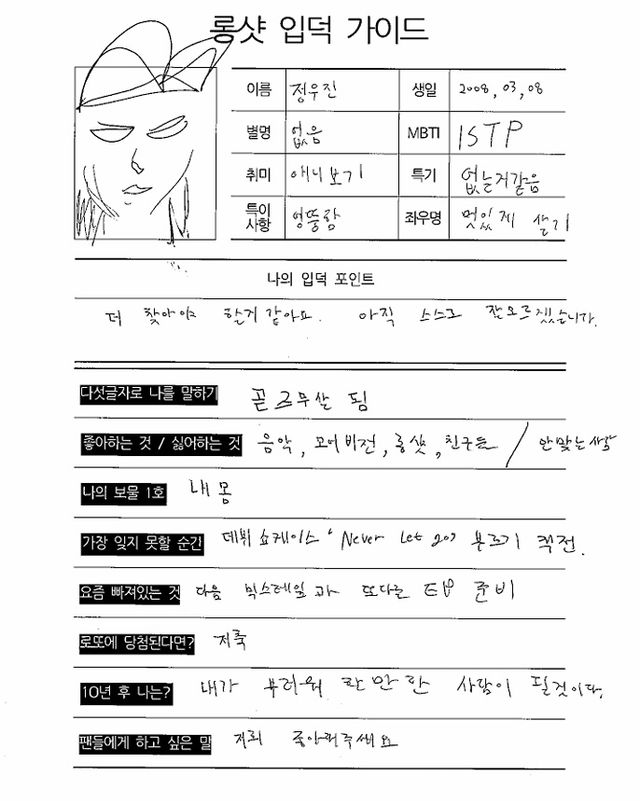 롱샷 입덕 가이드
이름 정우진 생일 2008, 03, 08
별명 없음 MBTI ISTP
취미 애니보기 특기 없는거같음
특이사항 엉뚱함 좌우명 멋있게 살기
나의 입덕 포인트
더 찾아야 할거 같아요. 아직 스스로 잘모르겠습니다.
다섯글자로 나를 말하기 곧 20살 됨
좋아하는 것 / 싫어하는 것 음악, 모어비전, 롱샷, 친구들 / 안맞는사람
나의 보물 1호 내 몸
가장 잊지 못할 순간 데뷔 쇼케이스 'Never Let Go' 부르기 직전.
요즘 빠져있는 것 다음 믹스테잎과 또다른 EP 준비
로또에 당첨된다면? 저축
10년 후 나는? 내가 부러워 할만한 사람이 될것이다.
팬들에게 하고 싶은 말 저희 좋아해주세요